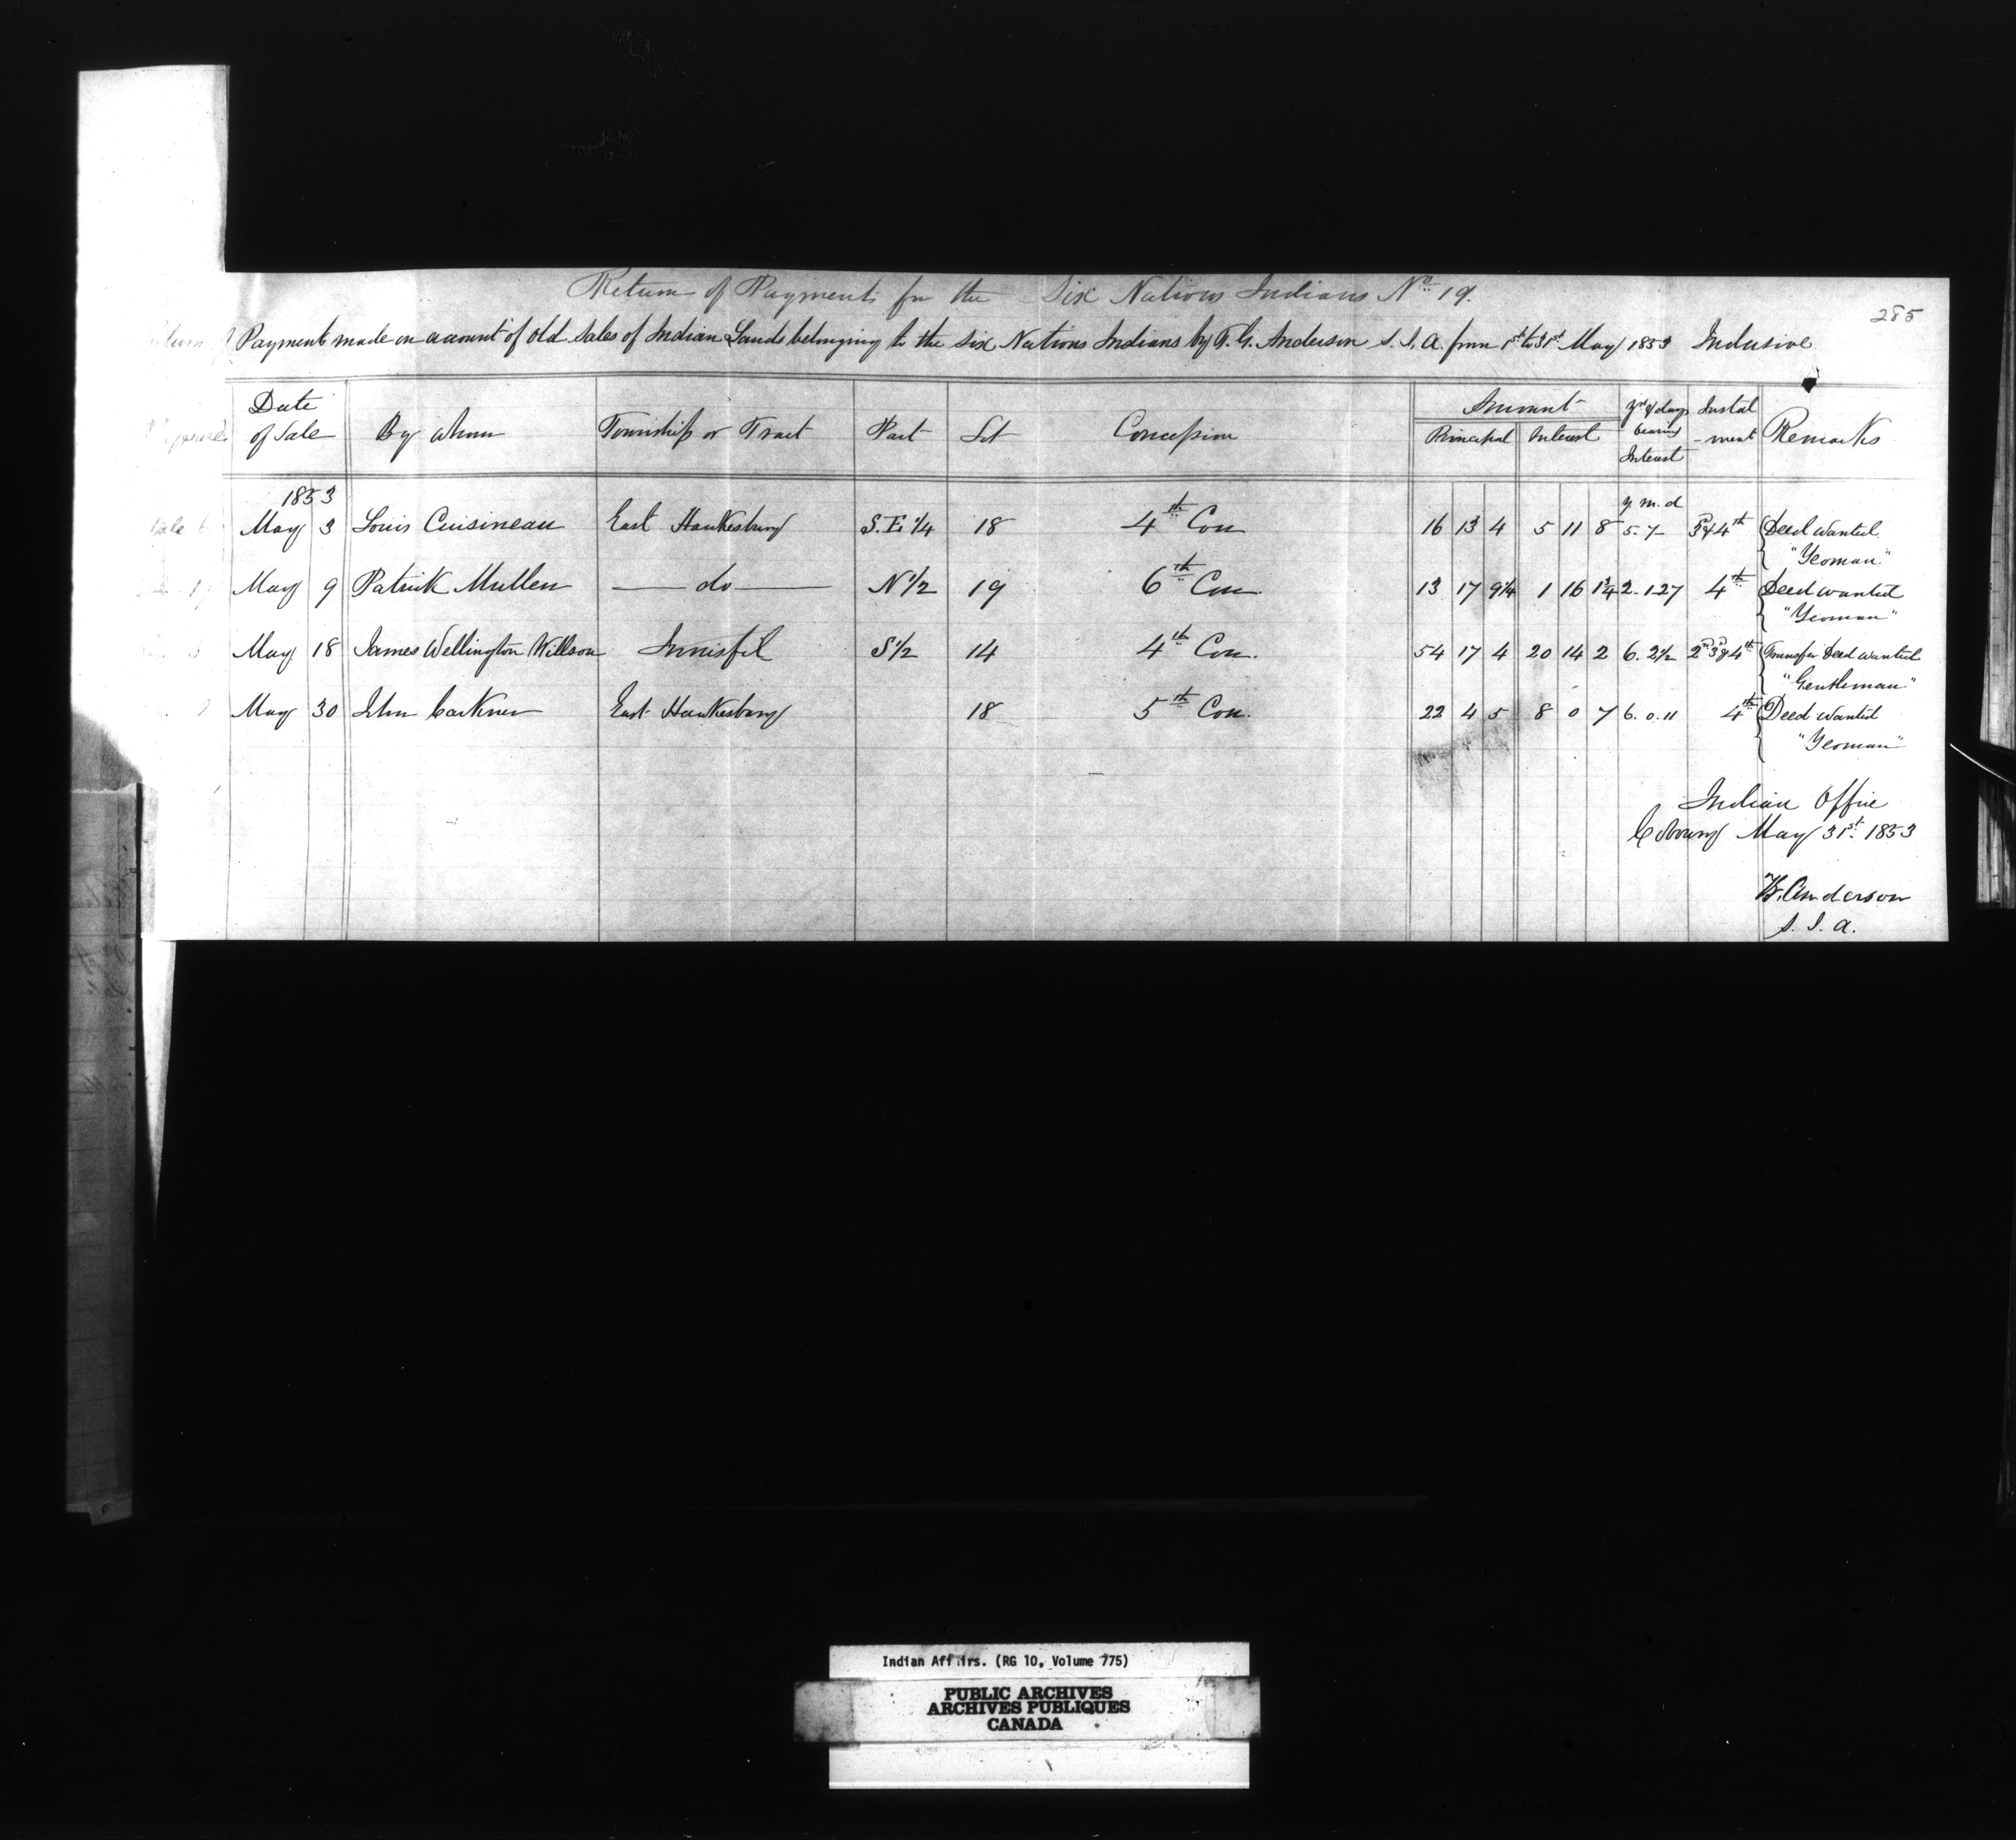 Return of Payments for the Six Nations Indians No. 19.
285
Payments made on account of old Sales of Indian Lands belonging to the Six Nations Indians by T. G. Anderson S. I. A. from 1st to 31st May 1853 Inclusive
Date of Sale By whom Township or Tract Part Lot Concession Amount Principal Interest yrs & days bearing Interest Instal-ment Remarks
1853 y m. d
May 3 Louis Cuisineau East Hawkesbury S. E. 1/4 18 4th Con 16 13 4 5 11 8 5. 7 - 3d & 4th Deed wanted
"Yeoman"
May 9 Patrick Mullen — do — N 1/2 19 6th Con 13 17 9 1/4 1 16 1 3/4 2. 1. 27 4th Deed wanted
"Yeoman"
May 18 James Wellington Willson Innisfil S 1/2 14 4th Con. 54 17 4 20 14 2 6. 2 1/2 2d 3d & 4th Transfer Deed wanted
"Gentleman"
May 30 John Carkner East Hawkesbury 18 5th Con. 22 4 5 8 0 7 6. 0. 11 4th Deed wanted
"Yeoman"
Indian Office
Cobourg May 31st. 1853
T. G. Anderson
S. I. A.
Indian Affairs. (RG 10, Volume 775)
PUBLIC ARCHIVES
ARCHIVES PUBLIQUES
CANADA